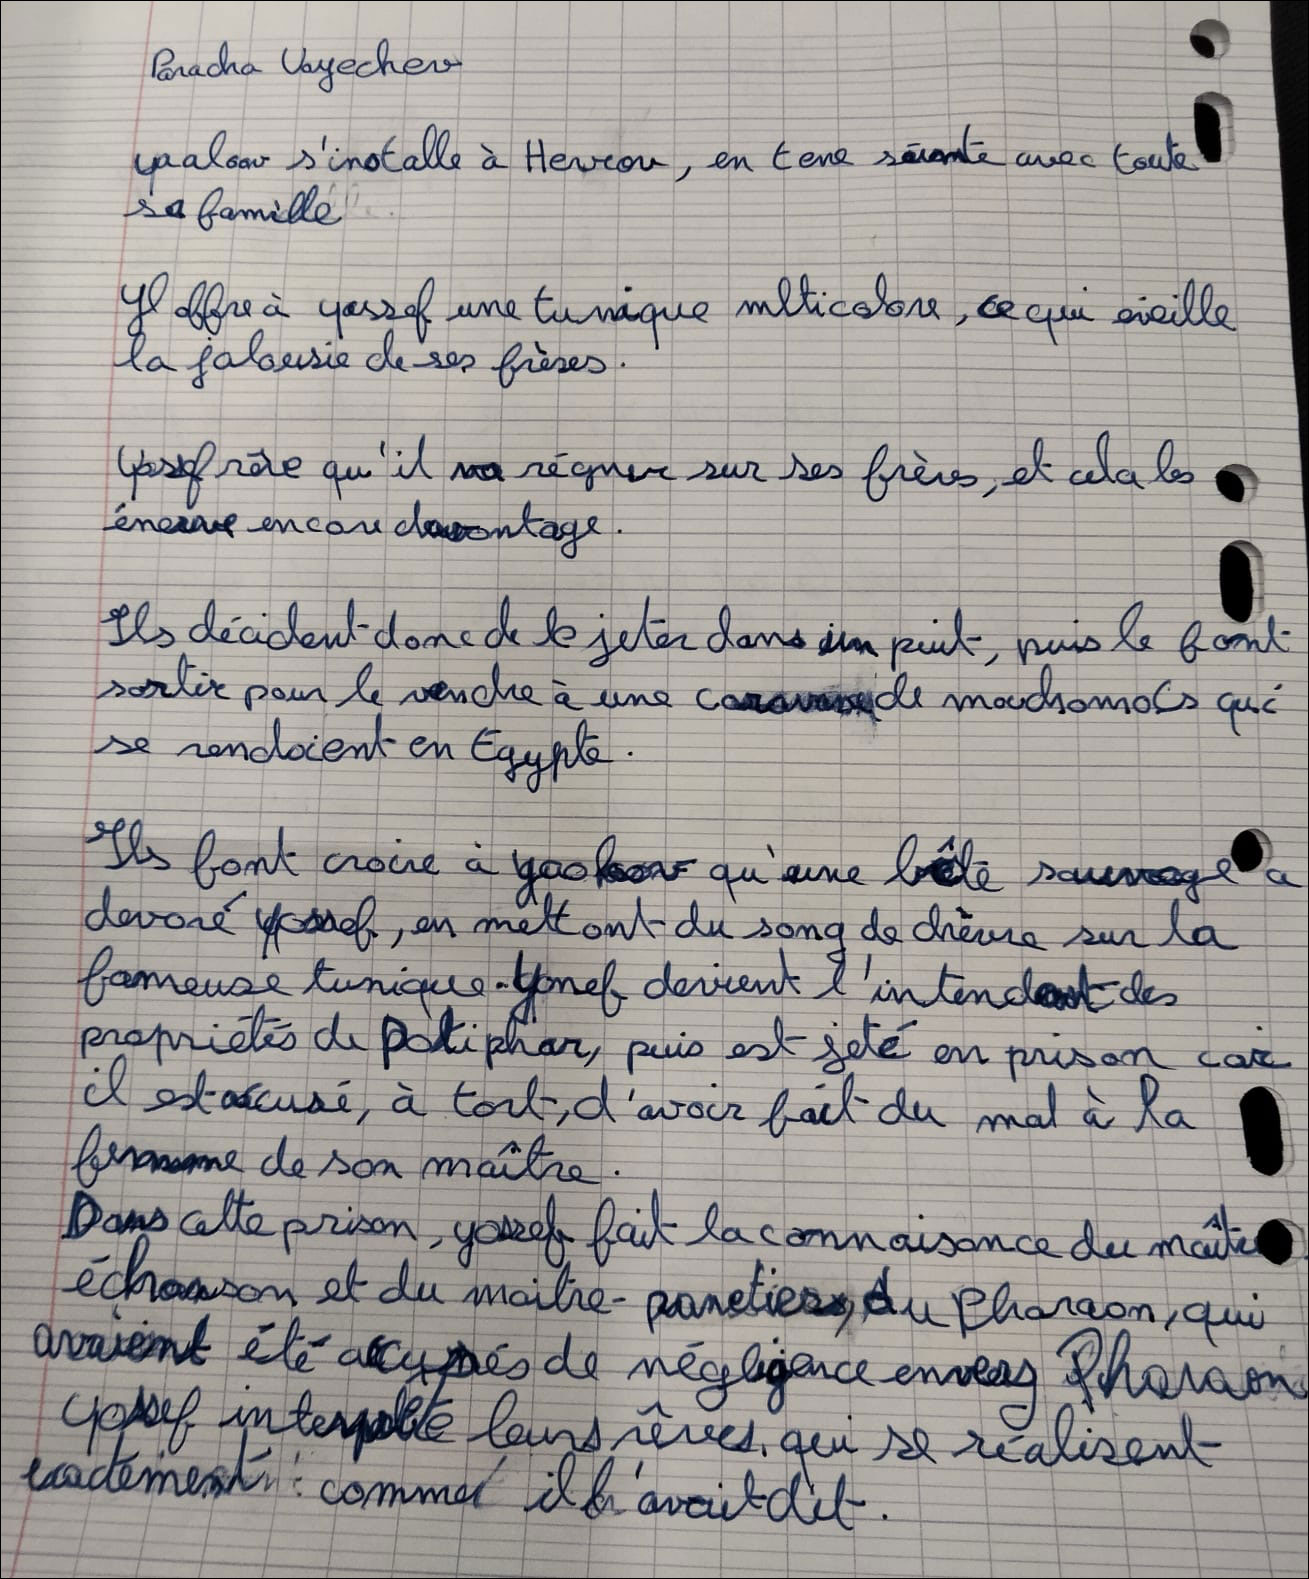 Paracha Vayechev
yaakov s'installe à Hevron, en terre sainte avec toute
sa famille
Il offre à yossef une tunique mlticolore, ce qui éveille
la jalousie de ses frères.
Yossef rêve qu'il va régner sur ses frères, et cela les
énerve encore davantage.
Ils décident donc de le jeter dans un puit, puis le font
sortir pour le vendre à une caravane de marchands qui
se rendaient en Egypte.
Ils font croire à yaakov qu'une bête sauvage a
devoré yossef, en mettant du sang de chèvre sur la
fameuse tunique. Yossef devient l'intendant des
propriétés de Potiphar, puis est jeté en prison car
il est accusé, à tort, d'avoir fait du mal à la
femme de son maître.
Dans cette prison, yossef fait la connaissance du maître
échanson et du maitre-panetier, du Pharaon, qui
avaient été accusés de négligence envers Pharaon
yossef interprète leurs rêves, qui se réalisent
exactement comme il l'avait dit.